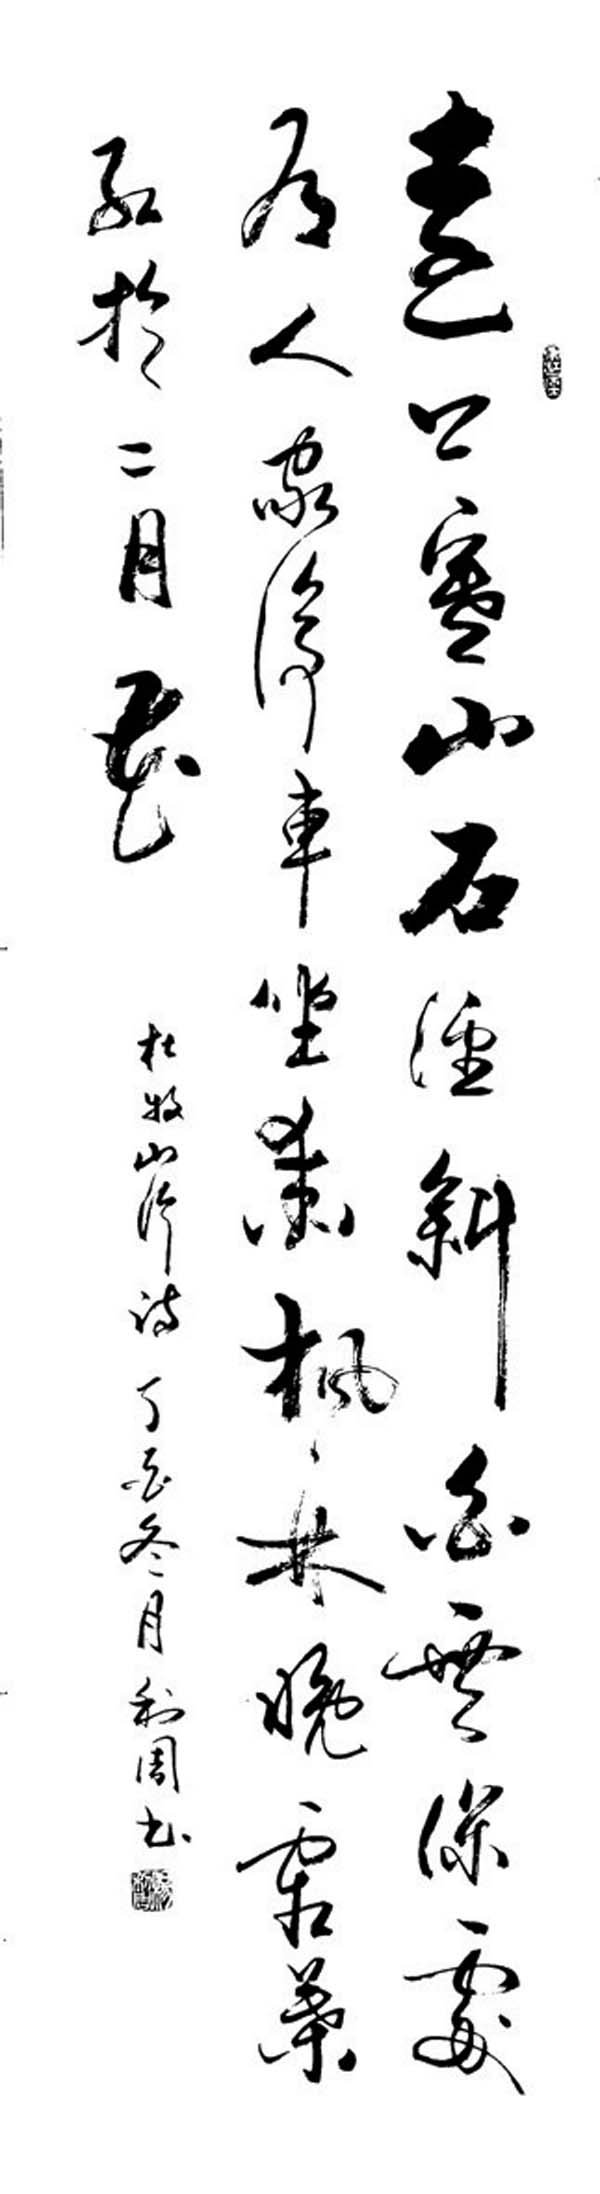 遠上寒山石徑斜白雲深處
有人家停車坐愛楓林晚霜葉
紅於二月花
杜牧山行詩 丁酉冬月 利周書